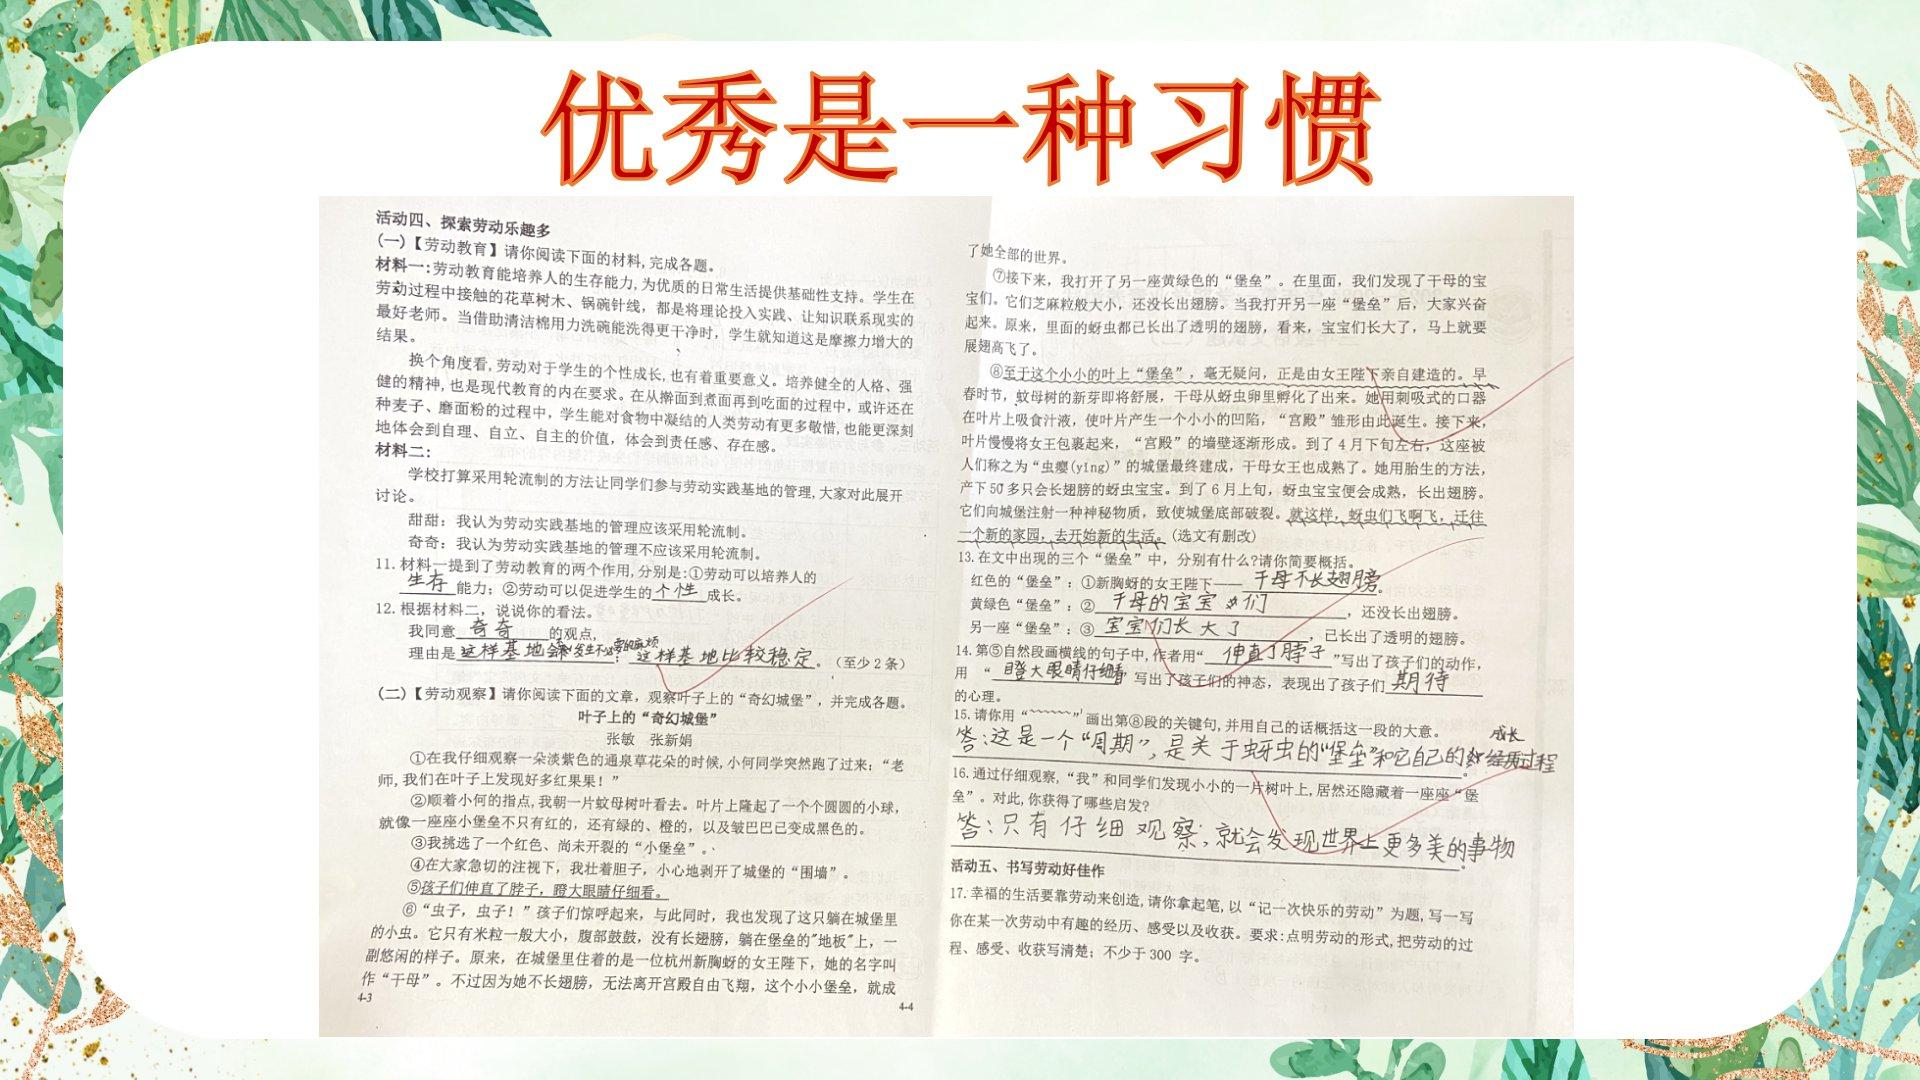 优秀是一种习惯
活动四、探索劳动乐趣多
(一)【劳动教育】请你阅读下面的材料,完成各题。
材料一:劳动教育能培养人的生存能力,为优质的日常生活提供基础性支持。学生在
劳动过程中接触的花草树木、锅碗针线，都是将理论投入实践、让知识联系现实的
最好老师。当借助清洁棉用力洗碗能洗得更干净时，学生就知道这是摩擦力增大的
结果。
换个角度看,劳动对于学生的个性成长,也有着重要意义。培养健全的人格、强
健的精神,也是现代教育的内在要求。在从擀面到煮面再到吃面的过程中，或许还在
种麦子、磨面粉的过程中，学生能对食物中凝结的人类劳动有更多敬惜,也能更深刻
地体会到自理、自立、自主的价值，体会到责任感、存在感。
材料二:
学校打算采用轮流制的方法让同学们参与劳动实践基地的管理,大家对此展开
讨论。
甜甜：我认为劳动实践基地的管理应该采用轮流制。
奇奇：我认为劳动实践基地的管理不应该采用轮流制。
11.材料一提到了劳动教育的两个作用,分别是:①劳动可以培养人的
生存能力；②劳动可以促进学生的个性成长。
12.根据材料二，说说你的看法。
我同意奇奇的观点,
理由是这样基地会发生不必要的麻烦；这样基地比较稳定。(至少2条)
(二)【劳动观察】请你阅读下面的文章，观察叶子上的“奇幻城堡”，并完成各题。
叶子上的“奇幻城堡”
张敏 张新娟
①在我仔细观察一朵淡紫色的通泉草花朵的时候,小何同学突然跑了过来：“老
师,我们在叶子上发现好多红果果！”
②顺着小何的指点,我朝一片蚊母树叶看去。叶片上隆起了一个个圆圆的小球，
就像一座座小堡垒不只有红的，还有绿的、橙的，以及皱巴巴已变成黑色的。
③我挑选了一个红色、尚未开裂的“小堡垒”。
④在大家急切的注视下，我壮着胆子，小心地剥开了城堡的“围墙”。
⑤孩子们伸直了脖子，瞪大眼睛仔细看。
⑥“虫子，虫子！”孩子们惊呼起来，与此同时，我也发现了这只躺在城堡里
的小虫。它只有米粒一般大小，腹部鼓鼓，没有长翅膀，躺在堡垒的“地板”上，一
副悠闲的样子。原来，在城堡里住着的是一位杭州新胸蚜的女王陛下，她的名字叫
作“干母”。不过因为她不长翅膀，无法离开宫殿自由飞翔，这个小小堡垒，就成
4-3
4-4
了她全部的世界。
⑦接下来，我打开了另一座黄绿色的“堡垒”。在里面，我们发现了干母的宝
宝们。它们芝麻粒般大小，还没长出翅膀。当我打开另一座“堡垒”后，大家兴奋
起来。原来，里面的蚜虫都已长出了透明的翅膀，看来，宝宝们长大了，马上就要
展翅高飞了。
⑧至于这个小小的叶上“堡垒”，毫无疑问，正是由女王陛下亲自建造的。早
春时节，蚊母树的新芽即将舒展，干母从蚜虫卵里孵化了出来。她用刺吸式的口器
在叶片上吸食汁液，使叶片产生一个小小的凹陷，“宫殿”雏形由此诞生。接下来，
叶片慢慢将女王包裹起来，“宫殿”的墙壁逐渐形成。到了4月下旬左右，这座被
人们称之为“虫瘿(yǐng)”的城堡最终建成，干母女王也成熟了。她用胎生的方法，
产下50多只会长翅膀的蚜虫宝宝。到了6月上旬，蚜虫宝宝便会成熟，长出翅膀。
它们向城堡注射一种神秘物质，致使城堡底部破裂。就这样，蚜虫们飞啊飞，迁往
一个新的家园，去开始新的生活。(选文有删改)
13.在文中出现的三个“堡垒”中，分别有什么?请你简要概括。
红色的“堡垒”：①新胸蚜的女王陛下——干母不长翅膀。
黄绿色“堡垒”：②干母的宝宝们，还没长出翅膀。
另一座“堡垒”：③宝宝们长大了，已长出了透明的翅膀。
14.第⑤自然段画横线的句子中,作者用“伸直了脖子”写出了孩子们的动作，
用“瞪大眼睛仔细看”写出了孩子们的神态，表现出了孩子们期待
的心理。
15.请你用“~~~~~~”画出第⑧段的关键句,并用自己的话概括这一段的大意。
成长
答:这是一个“周期”,是关于蚜虫的“堡垒”和它自己的经历过程。
16.通过仔细观察，“我”和同学们发现小小的一片树叶上,居然还隐藏着一座座“堡
垒”。对此,你获得了哪些启发?
答:只有仔细观察,就会发现世界上更多美的事物。
活动五、书写劳动好佳作
17.幸福的生活要靠劳动来创造,请你拿起笔,以“记一次快乐的劳动”为题,写一写
你在某一次劳动中有趣的经历、感受以及收获。要求:点明劳动的形式,把劳动的过
程、感受、收获写清楚；不少于300 字。